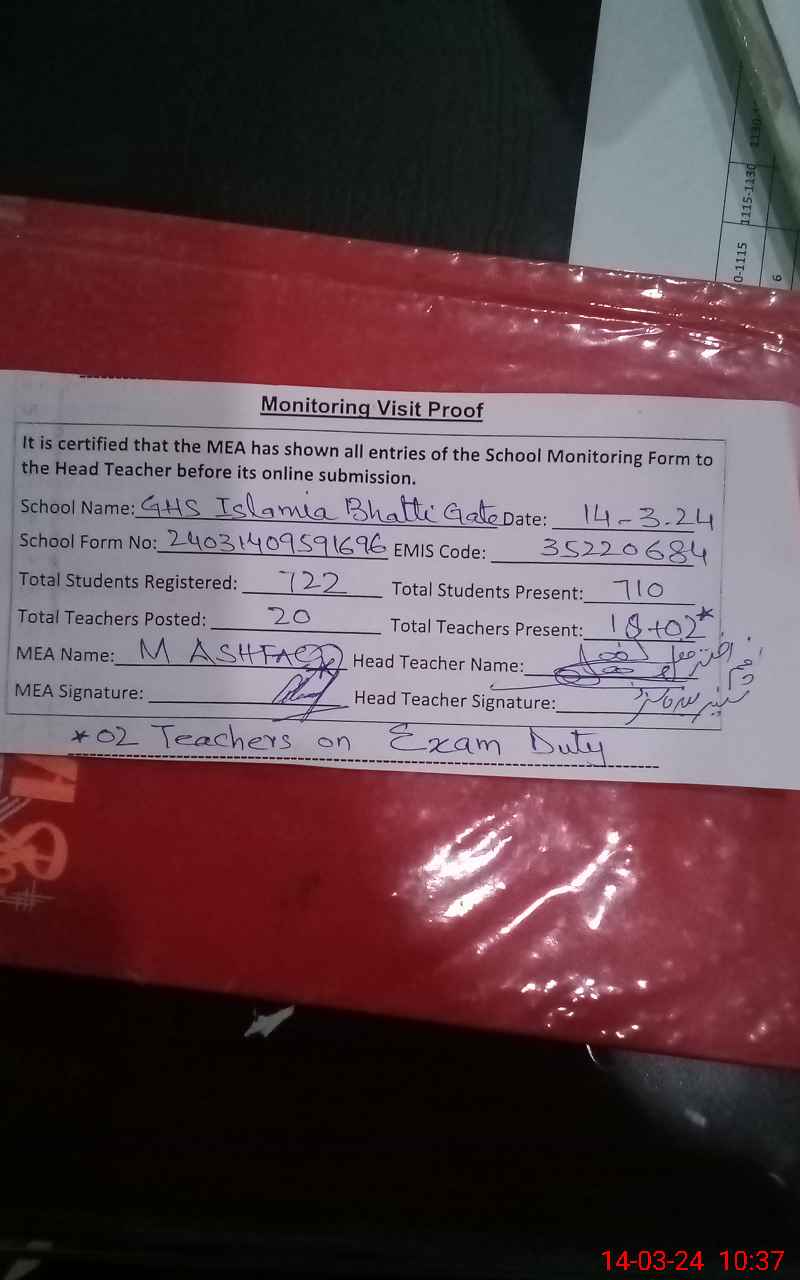 1130-1
1115-1130
0-1115
6
Monitoring Visit Proof
It is certified that the MEA has shown all entries of the School Monitoring Form to
the Head Teacher before its online submission.
School Name: GHS Islamia Bhatti Gate Date: 14-3.24
School Form No: 24031409591696 EMIS Code: 35220684
Total Students Registered: 722 Total Students Present: 710
Total Teachers Posted: 20 Total Teachers Present: 18+02*
MEA Name: M ASHFAQ Head Teacher Name:
MEA Signature: Head Teacher Signature:
*02 Teachers on Exam Duty
14-03-24 10:37